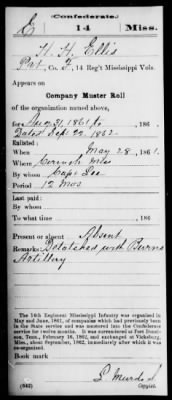 (Confederate.)
E 14 Miss.
H. H. Ellis
Pvt, Co. F, 14 Reg't Mississippi Vols.
Appears on
Company Muster Roll
of the organization named above,
for Aug 31, 1861 to , 186 .
Dated Sept 22, 1862
Enlisted:
When May 28, 1861.
Where Corinth Miss
By whom Capt Lee
Period 12 mos
Last paid:
By whom
To what time , 186 .
Present or absent Absent
Remarks: Detatched with Burns
Artillery
The 14th Regiment Mississippi Infantry was organized in
May and June, 1861, of companies which had previously been
in the State service and was mustered into the Confederate
service for twelve months. It was surrendered at Fort Donel-
son, Tenn., February 16, 1862, and exchanged at Vicksburg,
Miss., about September, 1862, after which it was re-organized.
Book mark
(642) Copyist.